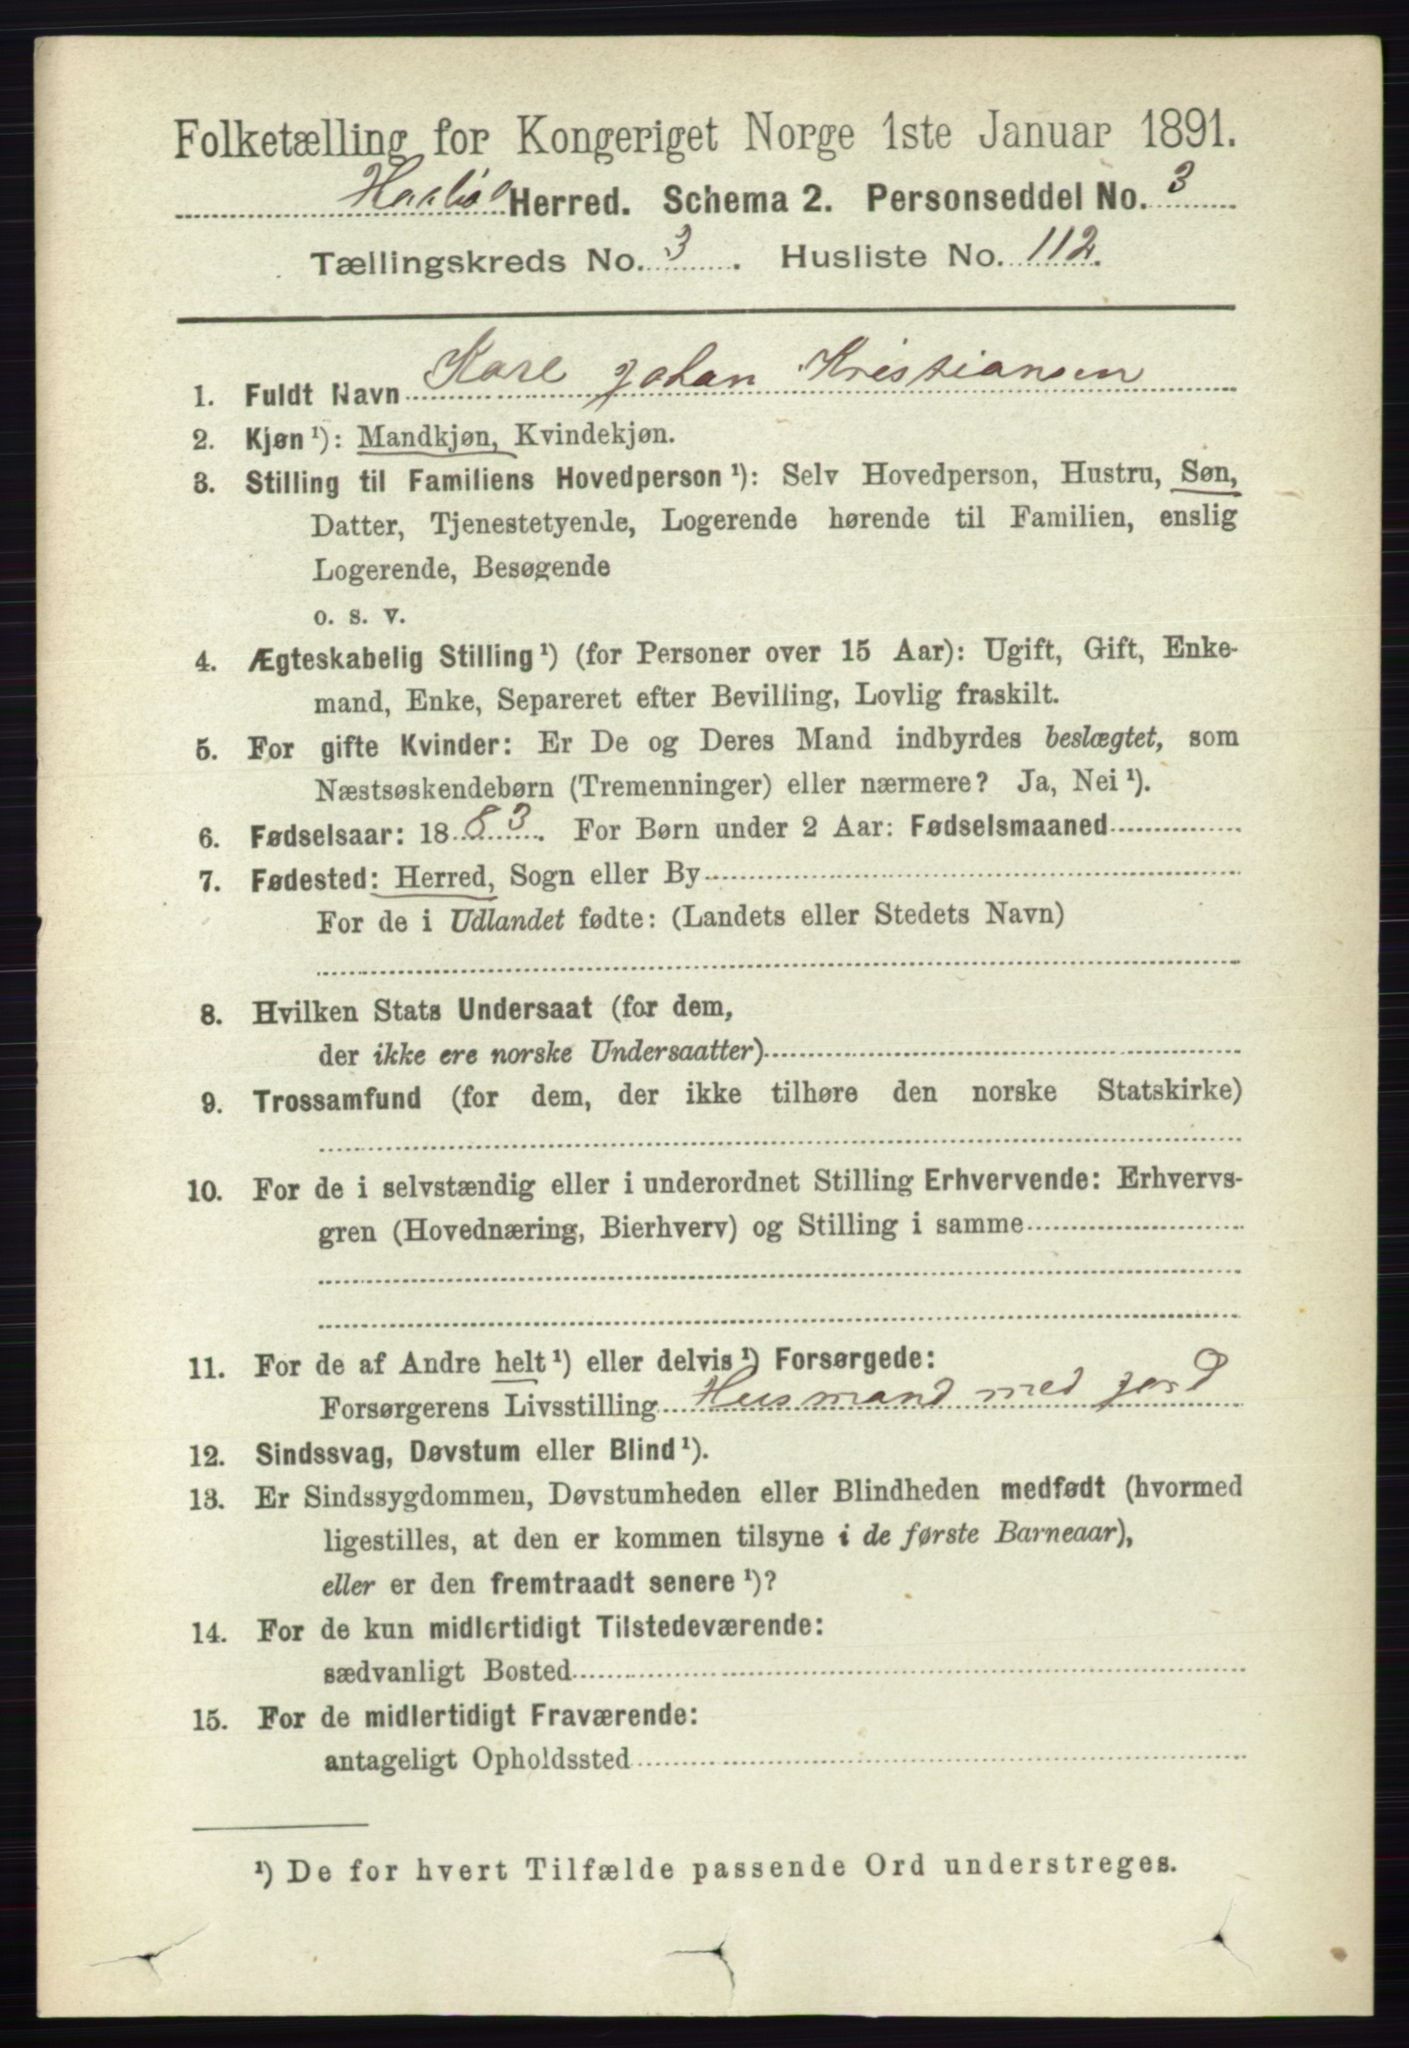 Folketælling for Kongeriget Norge 1ste Januar 1891.
Herred. Schema 2. Personseddel No. 3
Tællingskreds No. 3. Husliste No. 112.
1. Fuldt Navn Karl Johan Kristiansen
2. Kjøn ¹): Mandkjøn, Kvindekjøn.
3. Stilling til Familiens Hovedperson ¹): Selv Hovedperson, Hustru, Søn,
Datter, Tjenestetyende, Logerende hørende til Familien, enslig
Logerende, Besøgende
o. s. v.
4. Ægteskabelig Stilling ¹) (for Personer over 15 Aar): Ugift, Gift, Enke-
mand, Enke, Separeret efter Bevilling, Lovlig fraskilt.
5. For gifte Kvinder: Er De og Deres Mand indbyrdes beslægtet, som
Næstsøskendebørn (Tremenninger) eller nærmere? Ja, Nei ¹).
6. Fødselsaar: 1883. For Børn under 2 Aar: Fødselsmaaned
7. Fødested: Herred, Sogn eller By
For de i Udlandet fødte: (Landets eller Stedets Navn)
8. Hvilken Stats Undersaat (for dem,
der ikke ere norske Undersaatter)
9. Trossamfund (for dem, der ikke tilhøre den norske Statskirke)
10. For de i selvstændig eller i underordnet Stilling Erhvervende: Erhvervs-
gren (Hovednæring, Bierhverv) og Stilling i samme
11. For de af Andre helt ¹) eller delvis ¹) Forsørgede:
Forsørgerens Livsstilling Husmand med jord
12. Sindssvag, Døvstum eller Blind ¹).
13. Er Sindssygdommen, Døvstumheden eller Blindheden medfødt (hvormed
ligestilles, at den er kommen tilsyne i de første Barneaar),
eller er den fremtraadt senere ¹)?
14. For de kun midlertidigt Tilstedeværende:
sædvanligt Bosted
15. For de midlertidigt Fraværende:
antageligt Opholdssted
¹) De for hvert Tilfælde passende Ord understreges.